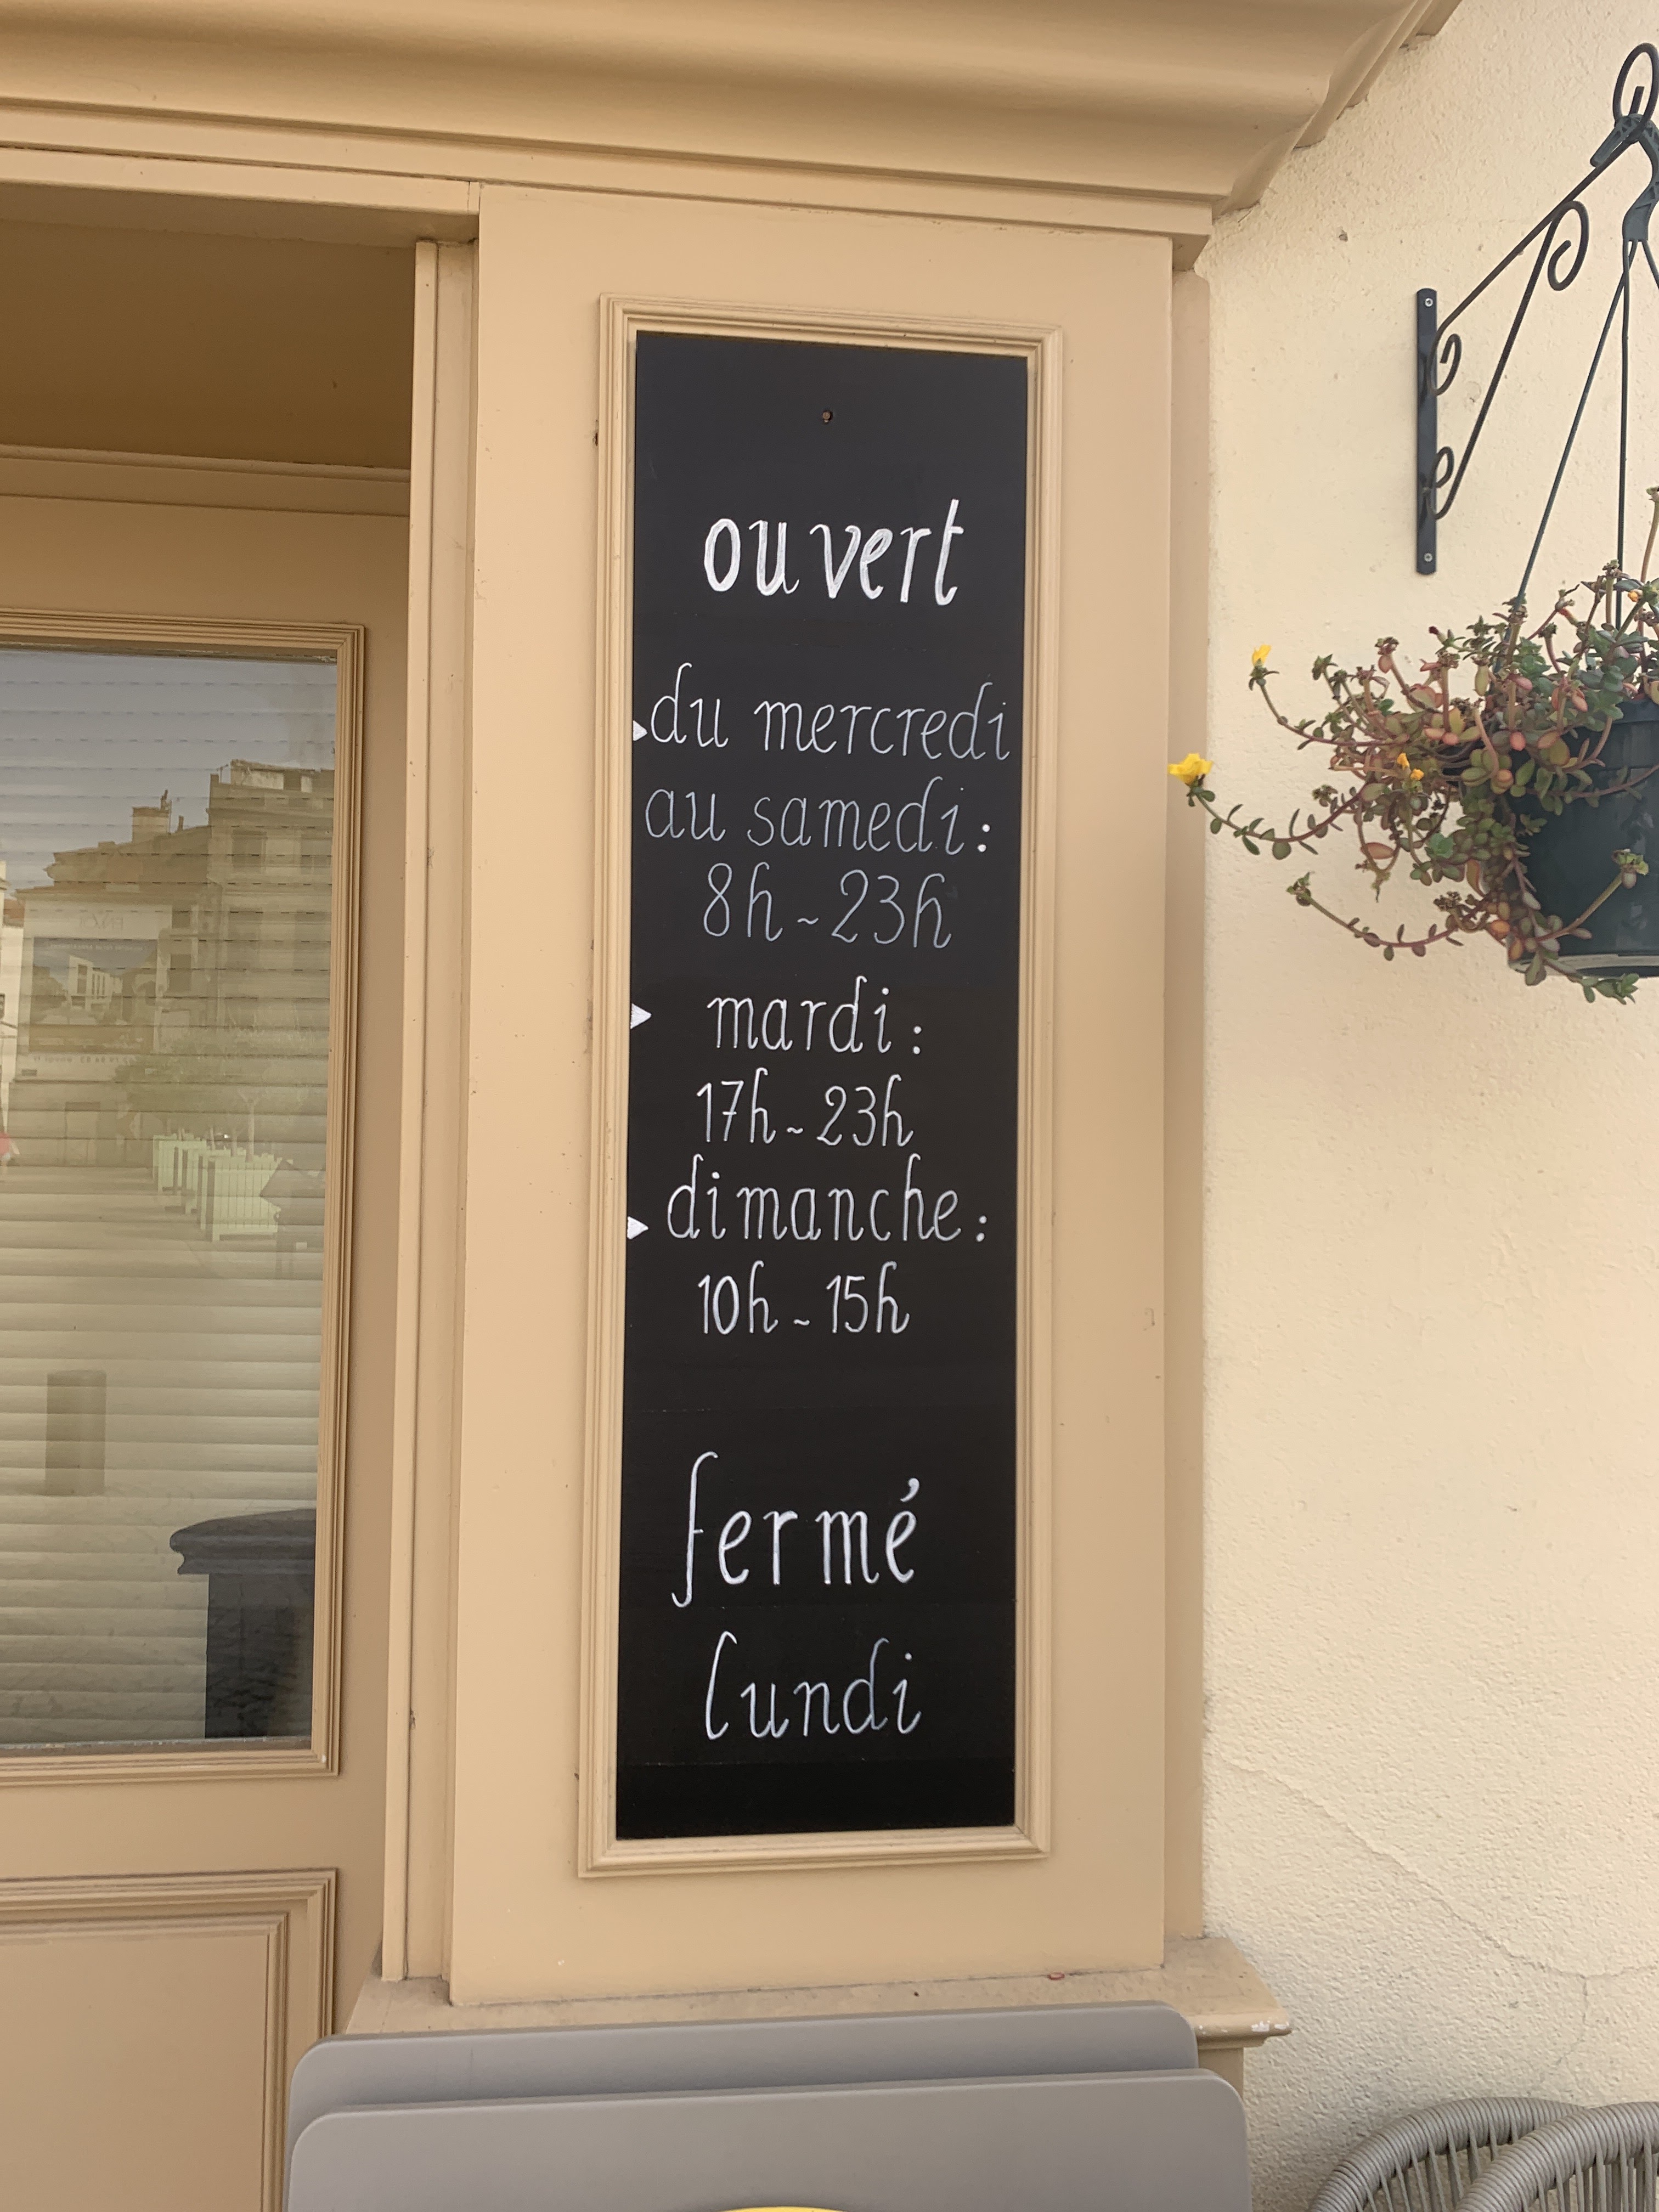 ouvert
du mercredi
au samedi :
8h ~ 23h
mardi :
17h ~ 23h
dimanche :
10h ~ 15h
fermé
lundi